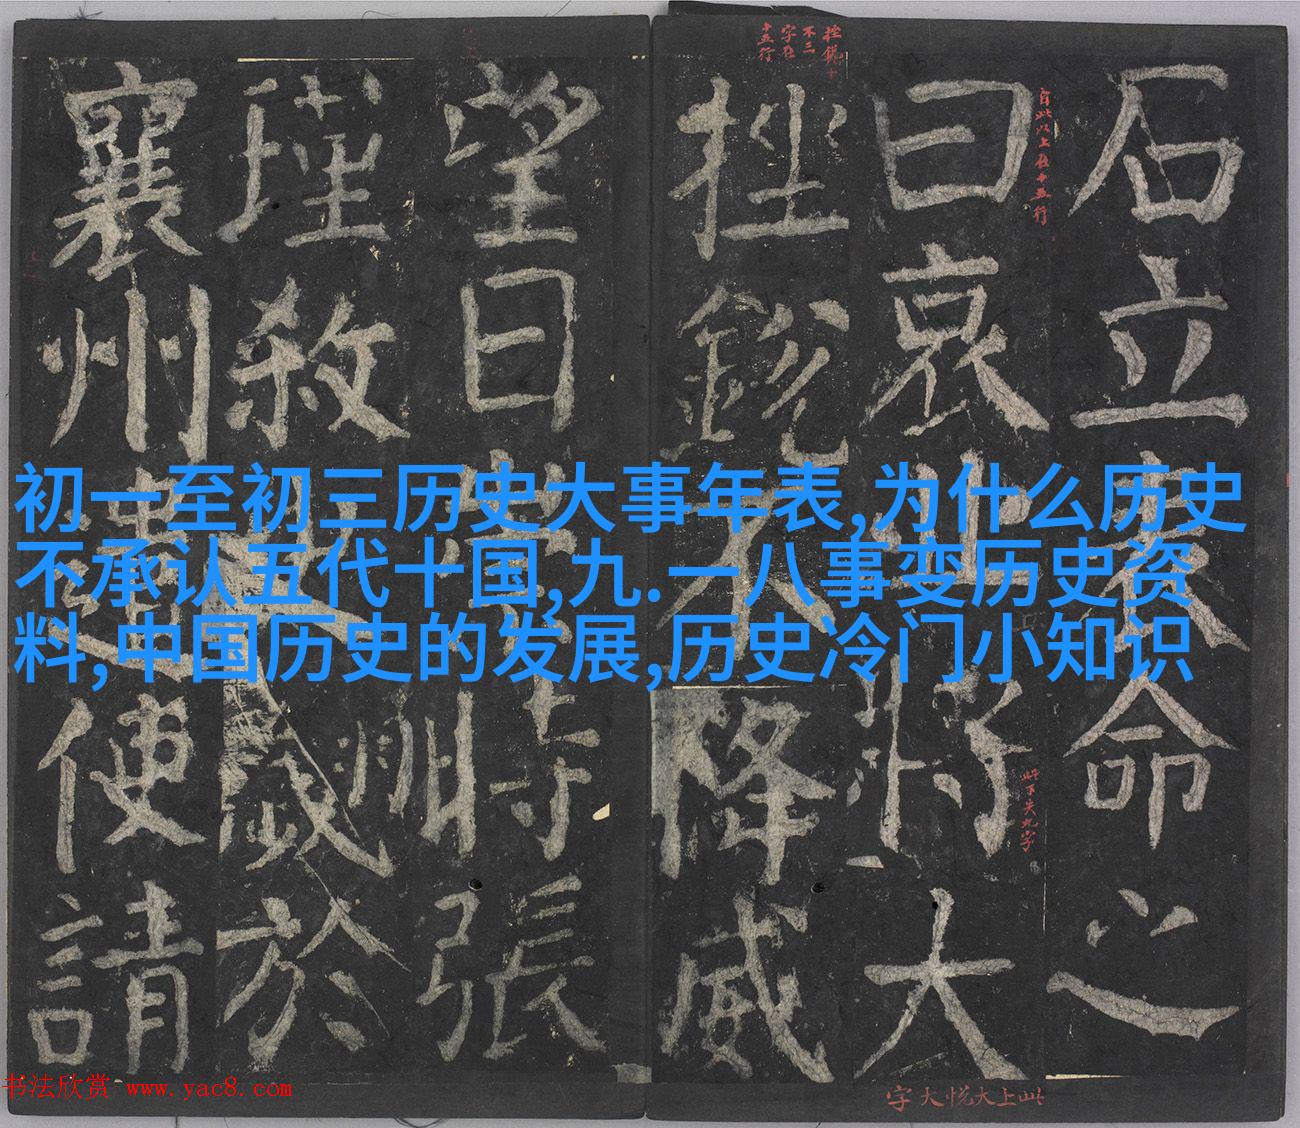 初一至初三历史大事年表,为什么历史
不承认五代十国,九.一八事变历史资
料,中国历史的发展,历史冷门小知识
石立命之
曰哀將大
挫銳不降威
望曰時張
瑾殺歲於
襄州使請
自此以上在十五行
此下失九字
书法欣赏 www.yac8.com